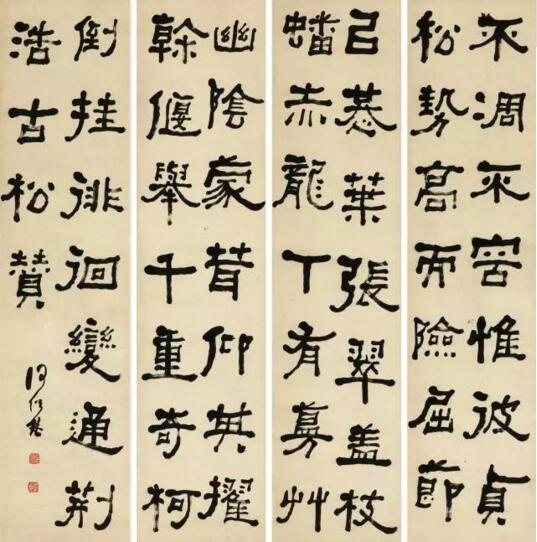 不凋不容惟彼貞
松勢高而險屈節
㠯恭葉張翠盖枝
蟠赤龍丅有蔓艸
幽陰蒙茸仰其擢
榦偃舉千重奇柯
倒挂徘徊變通荊
浩古松贊
何紹基